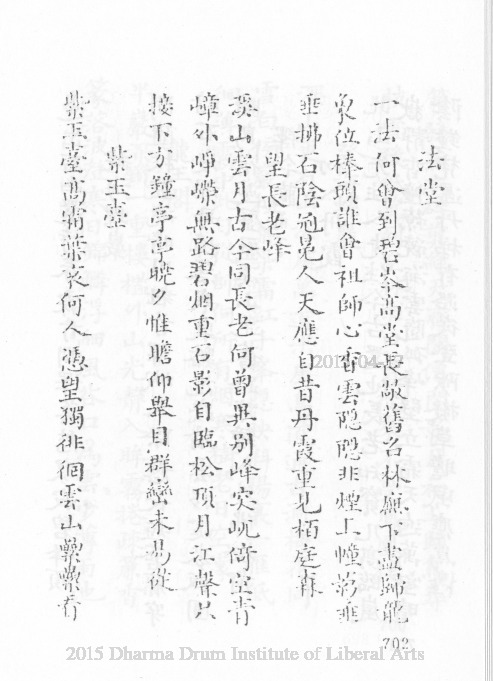 法堂
一法何曾到碧岑髙堂長敞舊名林廡下盡歸龍
象位棒頭誰會祖師心香雲隠隠非煙上幢影垂
垂拂石陰冠冕人天應自昔丹霞重見栢庭森
望長老峰
山雲月古今同長老何曾異別峰突屼倚空青
嶂外崢嶸無路碧烟重石影自臨松頂月江聲只
接下方鐘亭亭曉夕惟瞻仰舉目群巒未易從
紫玉臺
紫玉臺髙霜葉哀何人憑望獨徘徊雲山纍纍看
702
2015 Dharma Drum Institute of Liberal Arts